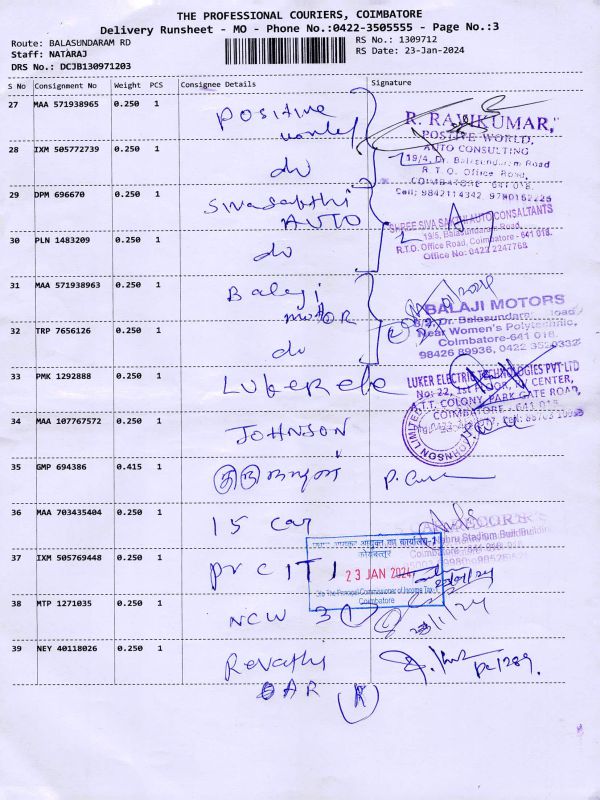 THE PROFESSIONAL COURIERS, COIMBATORE
Delivery Runsheet - MO - Phone No.:0422-3505555 - Page No.:3
Route: BALASUNDARAM RD
Staff: NATARAJ
DRS No.: DCJB130971203
RS No.: 1309712
RS Date: 23-Jan-2024
S No Consignment No Weight PCS Consignee Details Signature
27 MAA 571938965 0.250 1 Positive
R. RAVIKUMAR,
POSTIVE WORLD,
AUTO CONSULTING
28 IXM 505772739 0.250 1 do
19/4, Dr. Balasundaram Road
R. T. O. Office Road,
COIMBATORE - 641 018.
29 DPM 696670 0.250 1 Sivasakthi
AUTO
SHREE SIVA SAKTHI AUTO CONSULTANTS
19/5, Balasundaram Road,
R.T.O. Office Road, Coimbatore - 641 018.
Office No: 0422 2247768
30 PLN 1483209 0.250 1 do
31 MAA 571938963 0.250 1 Balaji
motor
BALAJI MOTORS
Near Women's Polytechnic,
Coimbatore-641 018.
32 TRP 7656126 0.250 1 do
98426 89936, 0422 3520332
33 PMK 1292888 0.250 1 Luker ele
LUKER ELECTRIC TECHNOLOGIES PVT LTD
A.T.T. COLONY, PARK GATE ROAD,
COIMBATORE - 641 018
34 MAA 107767572 0.250 1 JOHNSON
35 GMP 694386 0.415 1
36 MAA 703435404 0.250 1 15 car
Nehru Stadium Building
37 IXM 505769448 0.250 1 Pr C ITI
23 JAN 2024
O/o The Principal Commissioner of Income Tax
Coimbatore
38 MTP 1271035 0.250 1 NCW 3 1
23/1/24
39 NEY 40118026 0.250 1 Revathy
BAR
PC1289.